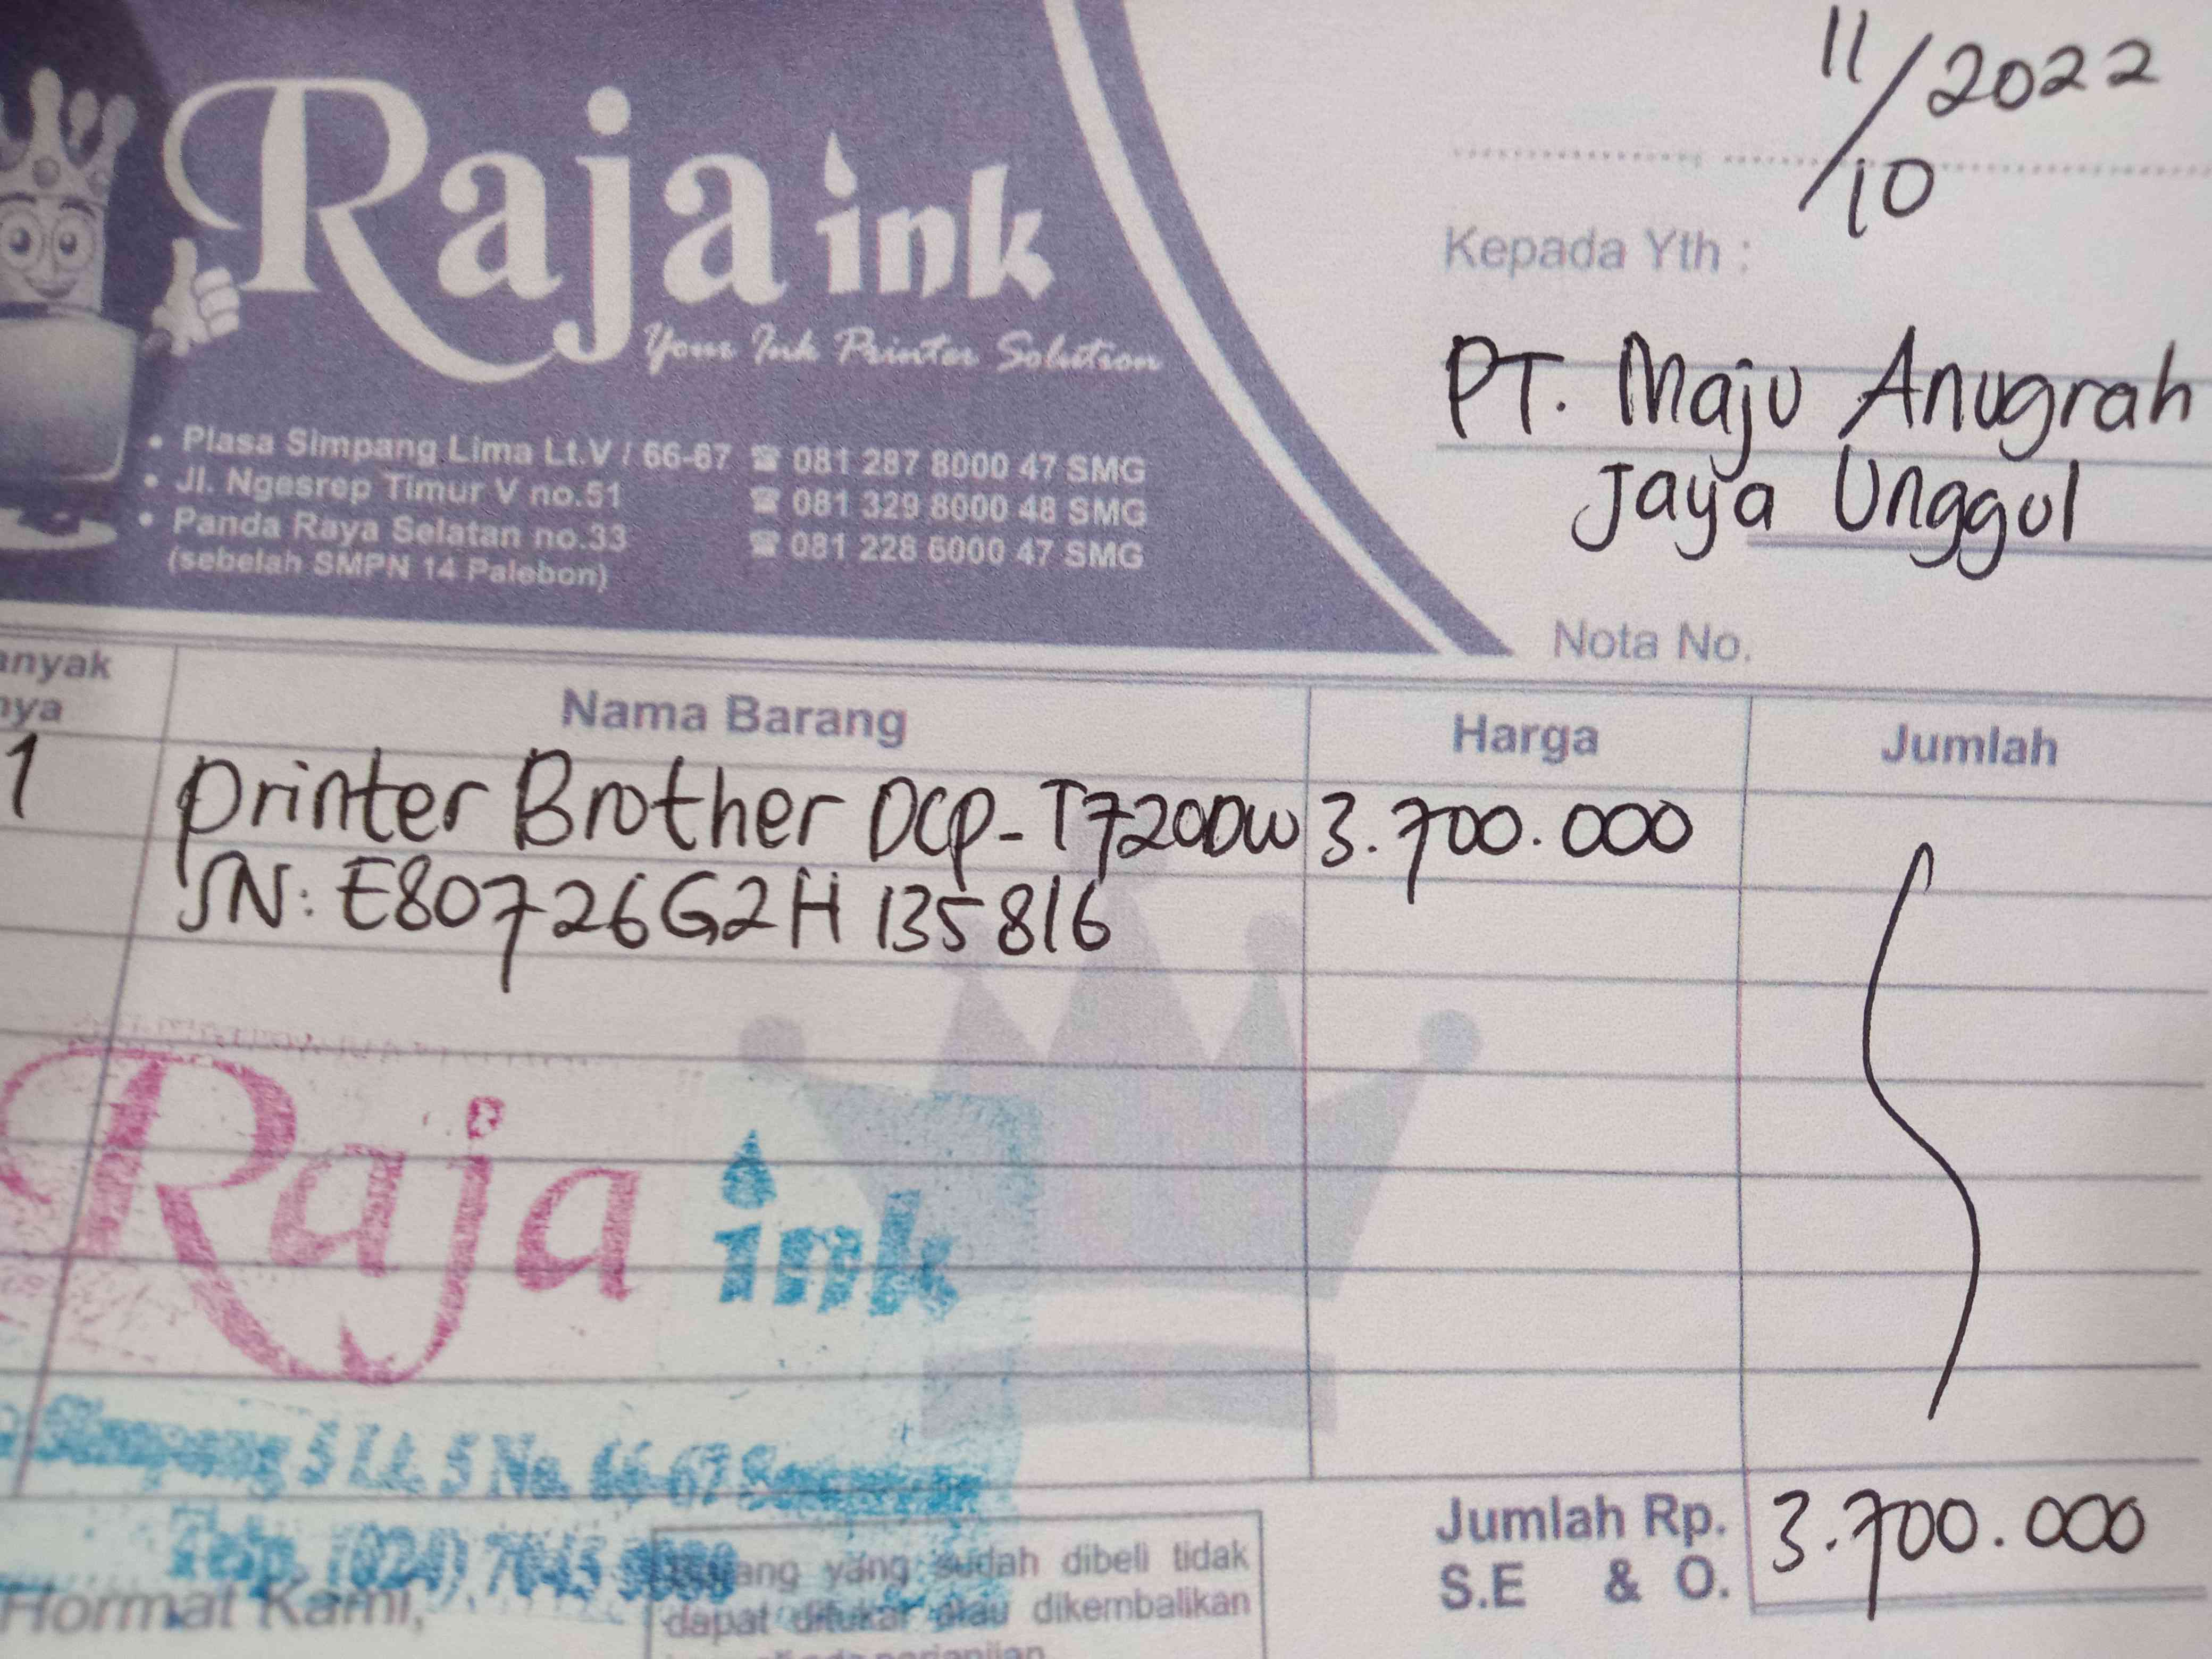 Raja ink
Your Ink Printer Solution
• Plasa Simpang Lima Lt.V / 66-67 ☎ 081 287 8000 47 SMG
• Jl. Ngesrep Timur V no.51 ☎ 081 329 8000 48 SMG
• Panda Raya Selatan no.33 ☎ 081 228 6000 47 SMG
(sebelah SMPN 14 Palebon)
11/10 2022
Kepada Yth :
PT. Maju Anugrah
Jaya Unggul
Nota No.
anyak
nya
Nama Barang
Harga
Jumlah
1 Printer Brother DCP-T720DW 3.700.000
SN: E80726G2H135816
Raja ink
Simpang 5 Lt. 5 No. 66-67
Telp. (024)
Hormat Kami,
yang sudah dibeli tidak
dapat ditukar atau dikembalikan
Jumlah Rp. 3.700.000
S.E & O.